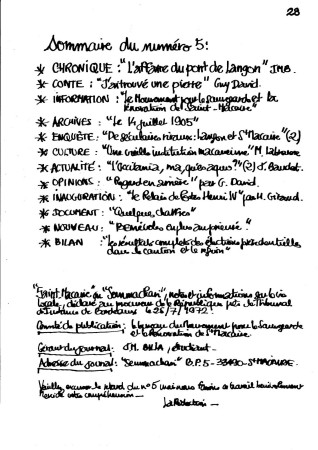 28
Sommaire du numéro 5:
* CHRONIQUE : "L'affaire du pont de Langon" J.M.B.
* CONTE : "J'ai trouvé une pierre" Guy David.
* INFORMATION : "le Mouvement pour la sauvegarde et la
rénovation de Saint-Macaire"
* ARCHIVES : "Le 14 juillet 1905"
* ENQUÊTE : "De séculaires rivaux: Langon et St Macaire" (2)
* CULTURE : "Une vieille institution macarienne" M.
* ACTUALITÉ : "L'Occitania, ma, qu'es aquo?" (2) J. Baudet.
* OPINIONS : "Regard en arrière" par G. David.
* INAUGURATION : "le Relais de Poste Henri IV" par H. Giraud.
* DOCUMENT : "Quelques chiffres"
* NOUVEAU : "
* BILAN : "les résultats complets des élections présidentielles
dans le canton et la région"
"Saint-Macaire" ou "Sennmachan", notes et informations sur la vie
locale, déclaré au procureur de la République près le Tribunal
d'Instance de Bordeaux le 26/7/1972.
Comité de publication: le bureau du Mouvement pour la Sauvegarde
et la Rénovation de St Macaire
Gérant du journal: J.M. étudiant.
Adresse du journal: "Sennmachan" B.P.5 - 33490 - St MACAIRE.
Veuillez excuser le retard du n°5 mais nous faisons ce travail bénévolement
Merci de votre compréhension —
La Rédaction —